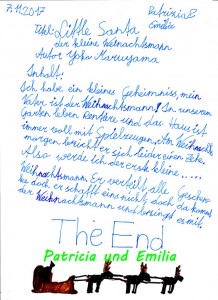 7.11.2017 Patrizia &
Emilia
Titel: Little Santa
der kleine Weihnachtsmann
Autor Yoko Maruyama
Inhalt:
Ich habe ein kleines Geheimniss, mein
Vater ist der Weihnachtsmann! In unseren
Garten leben Rentiere und das Haus ist
immer voll mit Spielzeugen. Am Weihnachts
morgen bricht er sich leider einen Zeh.
Also werde ich der erste kleine.....
Weihnachtsmann. Er verteilt alle Geschen
ke doch er schafft eins nicht doch da kommt
der Weihnachtsmann und bringt es mit.
The End
Patricia und Emilia